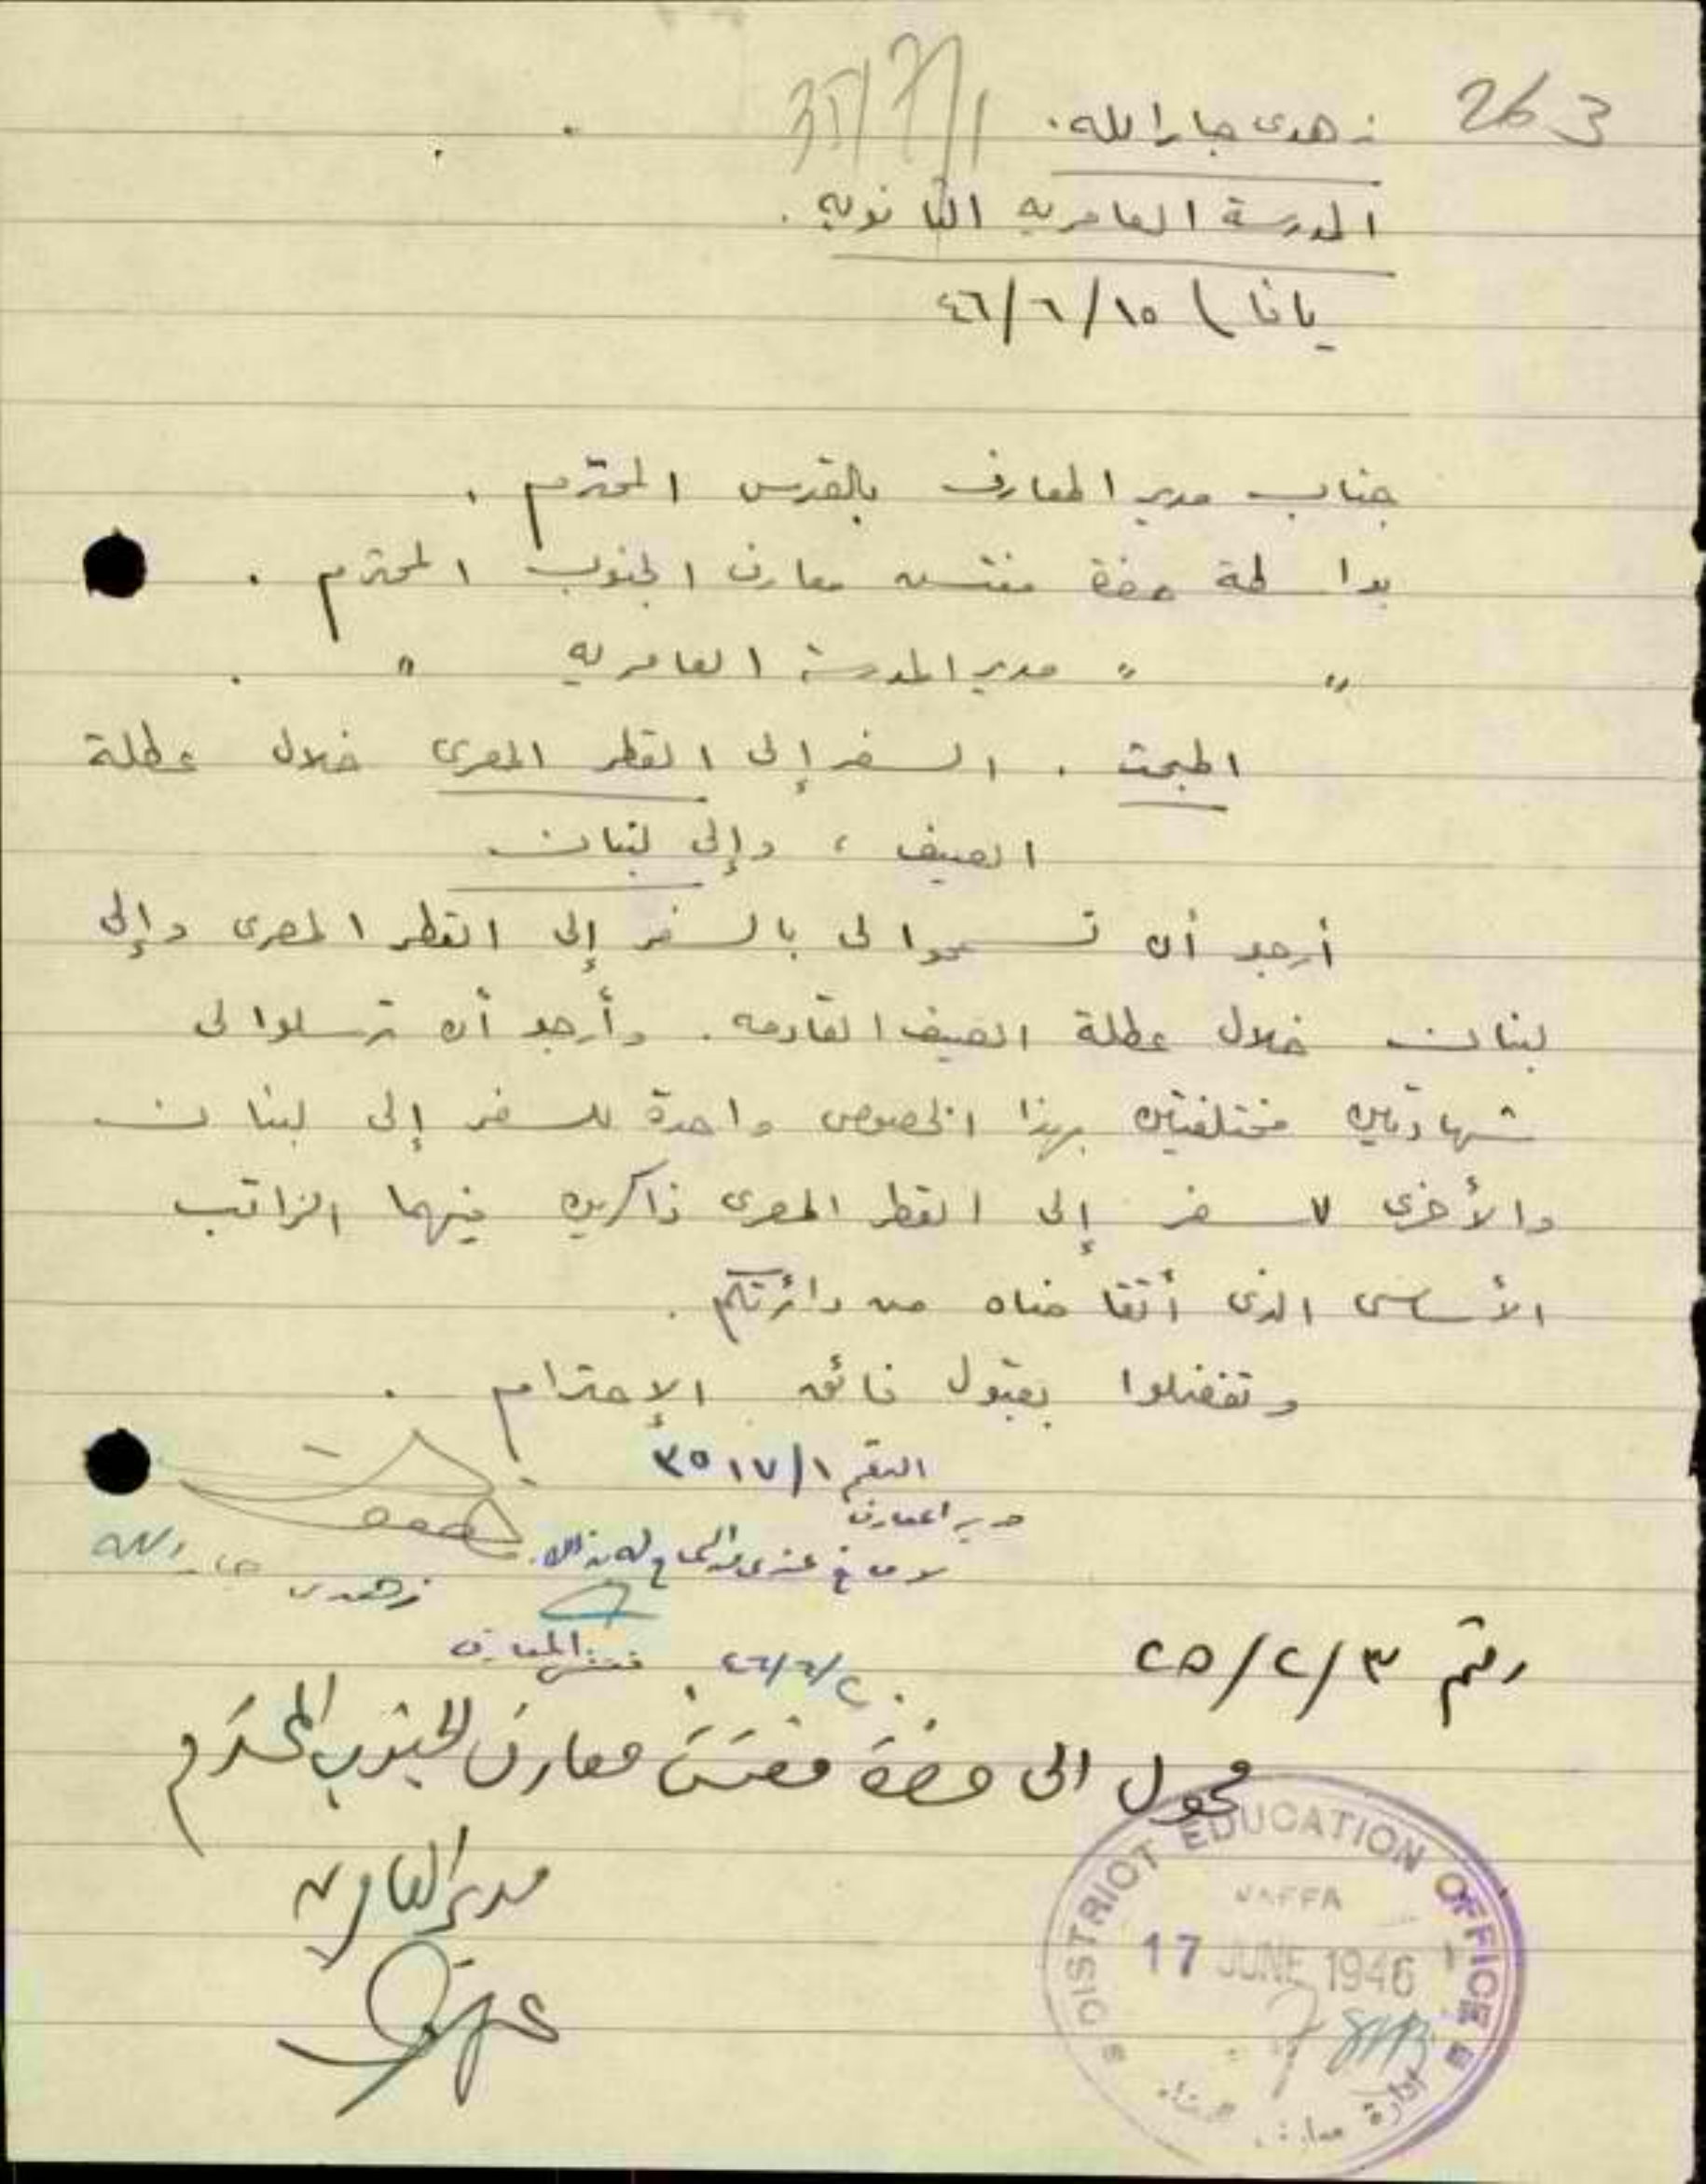 263
زهدى جارالله.
المدرسة العامريه الثانويه.
يافا ١٥/٦/٤٦
جناب مدير المعارف بالقدس المحترم.
بواسطة حضرة مفتش معارف الجنوب المحترم.
" " مدير المدرسة العامريه " .
المبحث. السفر إلى القطر المصرى خلال عطلة
الصيف، وإلى لبنان
أرجو أن تسمحوا لى بالسفر إلى القطر المصرى وإلى
لبنان خلال عطلة الصيف القادمه. وأرجو أن ترسلوا لى
شهادتين مختلفتين بهذا الخصوص واحدة للسفر إلى لبنان
والأخرى للسفر إلى القطر المصرى ذاكرين فيهما الراتب
الأساسى الذى أتقاضاه من دائرتكم.
وتفضلوا بقبول فائق الإحترام.
الرقم ٣٥١٧/١
مدير المعارف
لا مانع عندى من السماح له بذلك.
زهدى جارالله
مفتش المعارف ٢٠/٦/٤٦
رقم ٢٥/٢/٣
محول الى حضرة مفتش معارف الجنوب المحترم
مدير العامريه
DISTRICT EDUCATION OFFICE
JAFFA
17 JUNE 1946
ادارة معارف